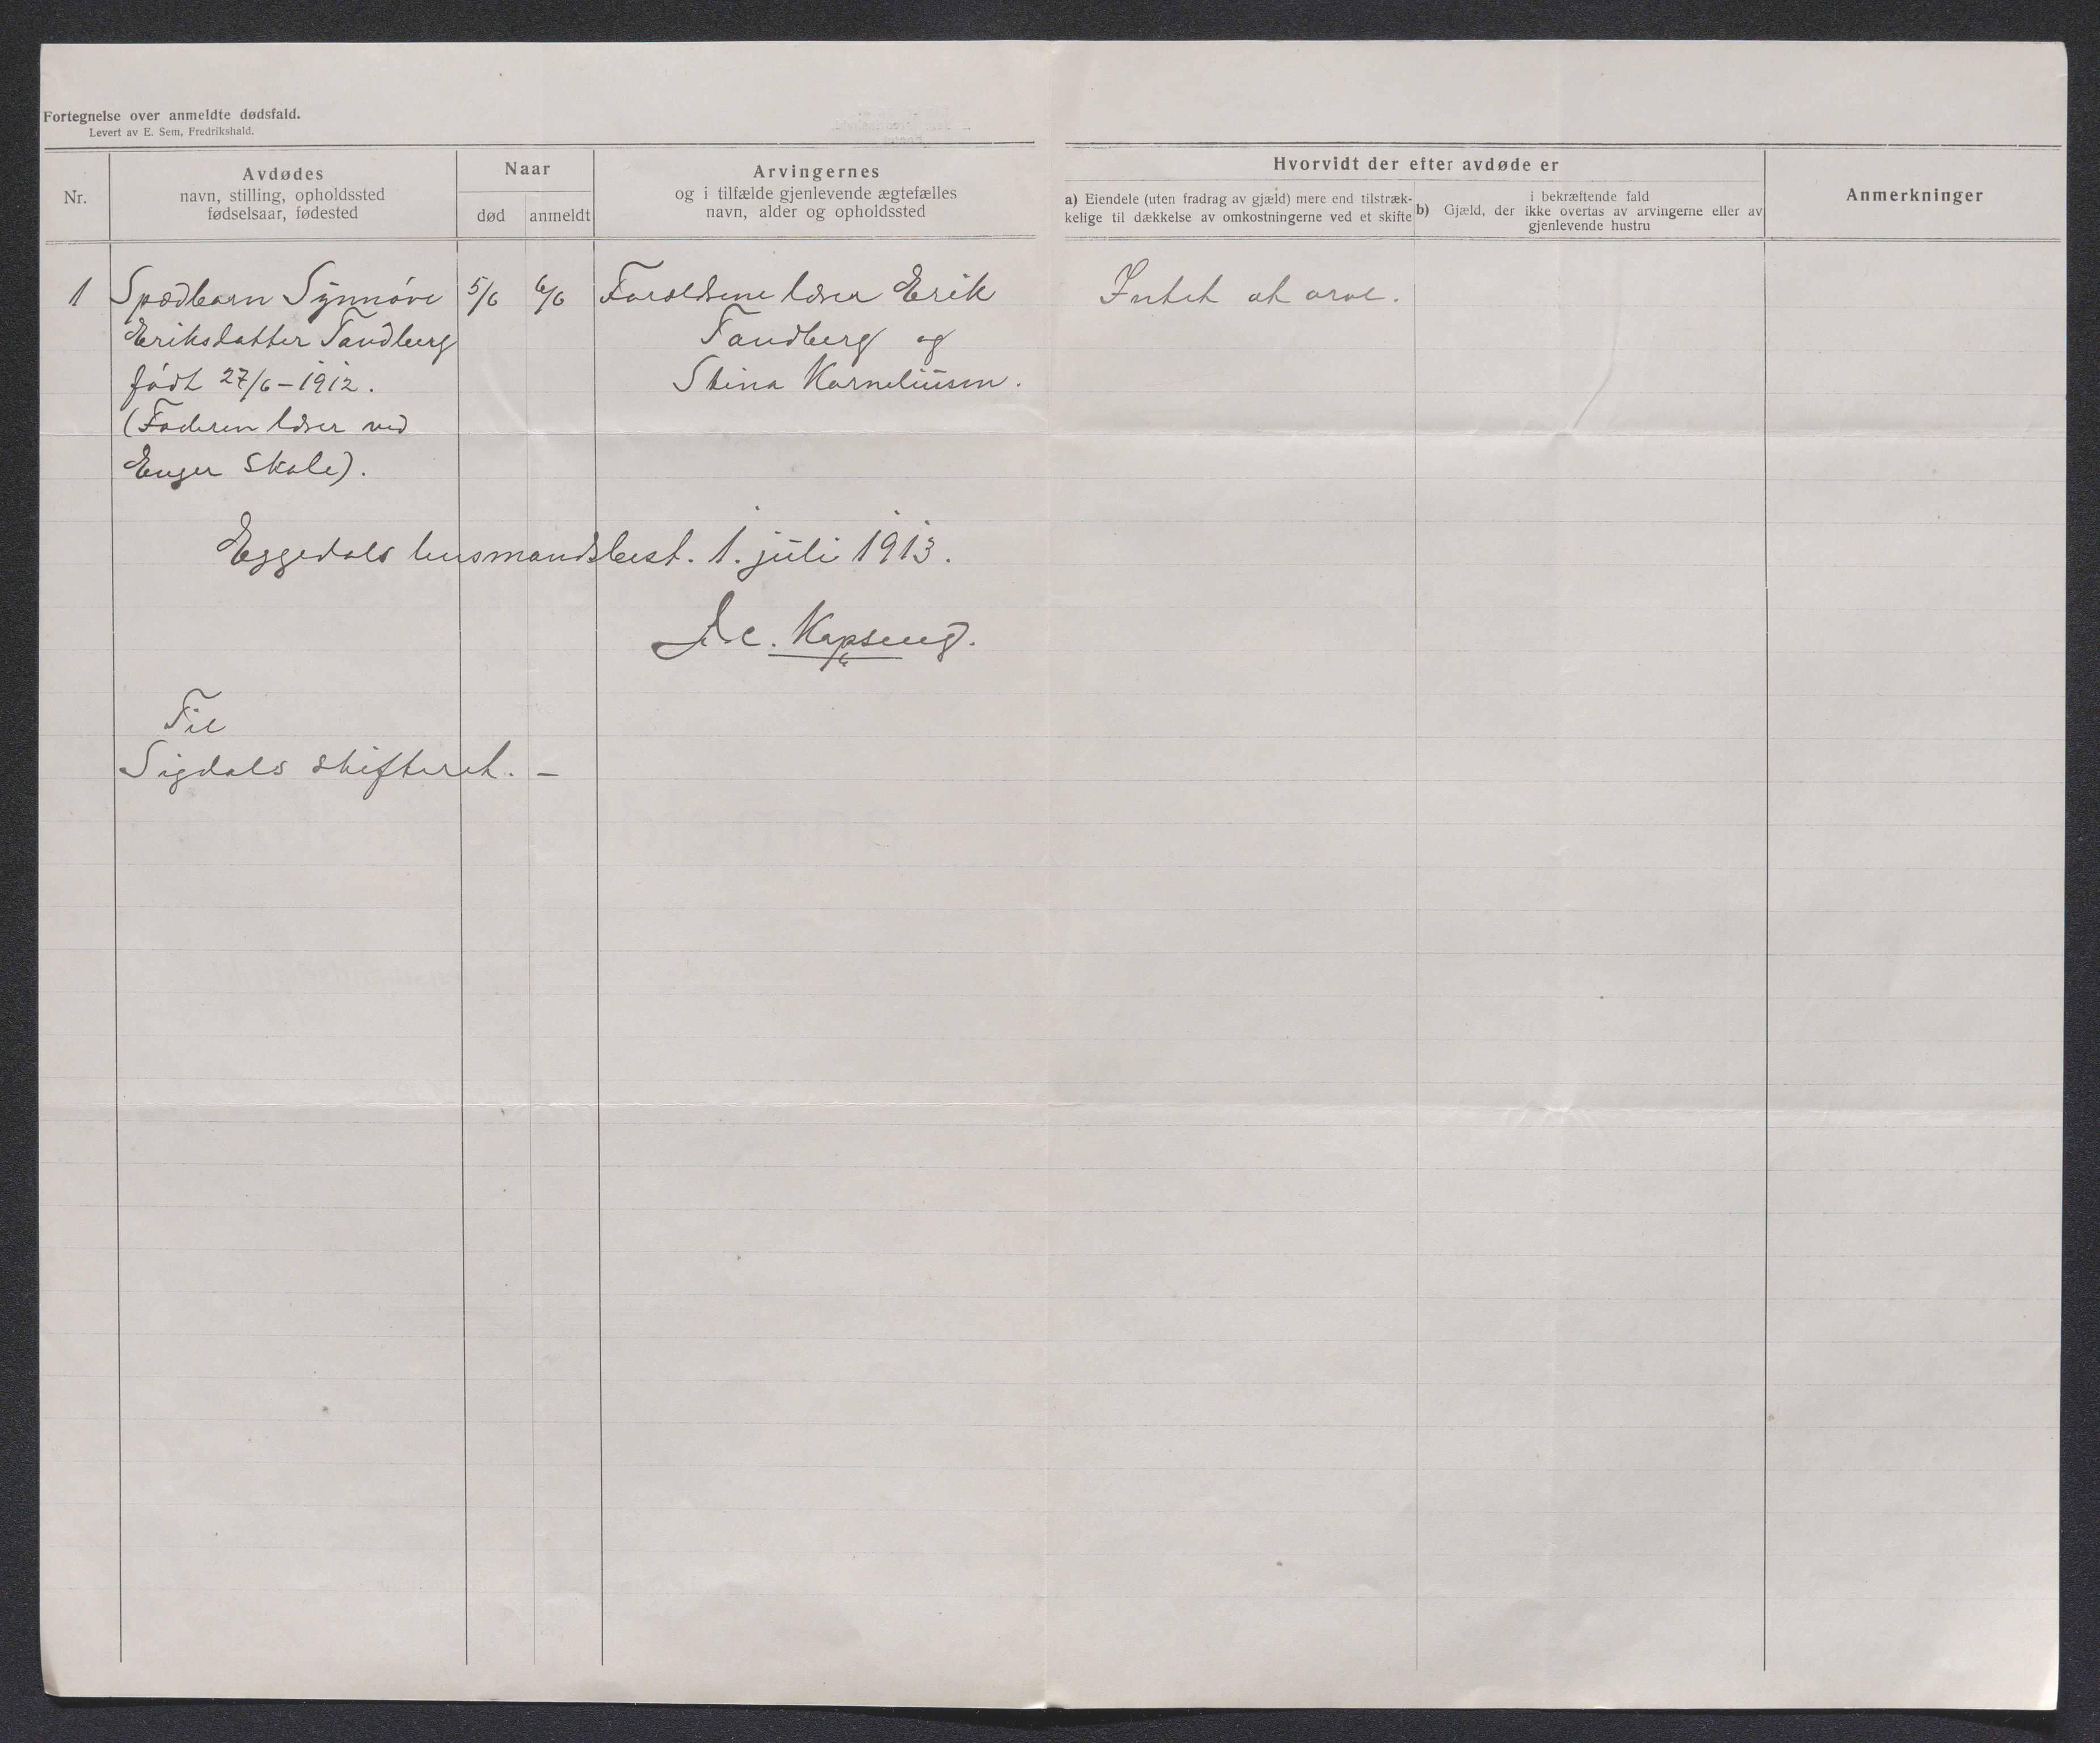 Fortegnelse over anmeldte dødsfald.
Levert av E. Sem, Fredrikshald.
Nr.
Avdødes
navn, stilling, opholdssted
fødselsaar, fødested
Naar
død anmeldt
Arvingernes
og i tilfælde gjenlevende ægtefælles
navn, alder og opholdssted
Hvorvidt der efter avdøde er
a) Eiendele (uten fradrag av gjæld) mere end tilstræk-
kelige til dækkelse av omkostningerne ved et skifte
i bekræftende fald
b) Gjæld, der ikke overtas av arvingerne eller av
gjenlevende hustru
Anmerkninger
1 Spædbarn Synnøve 5/6 6/6 Forældrene lærer Erik Intet at arve.
Eriksdatter Tandberg Tandberg og
født 27/6-1912. Stina Korneliusen.
(Faderen lærer ved
Enger skole).
Eggedals lensmandsbest. 1. juli 1913.
Kopseng.
Til
Sigdals skifteret. –